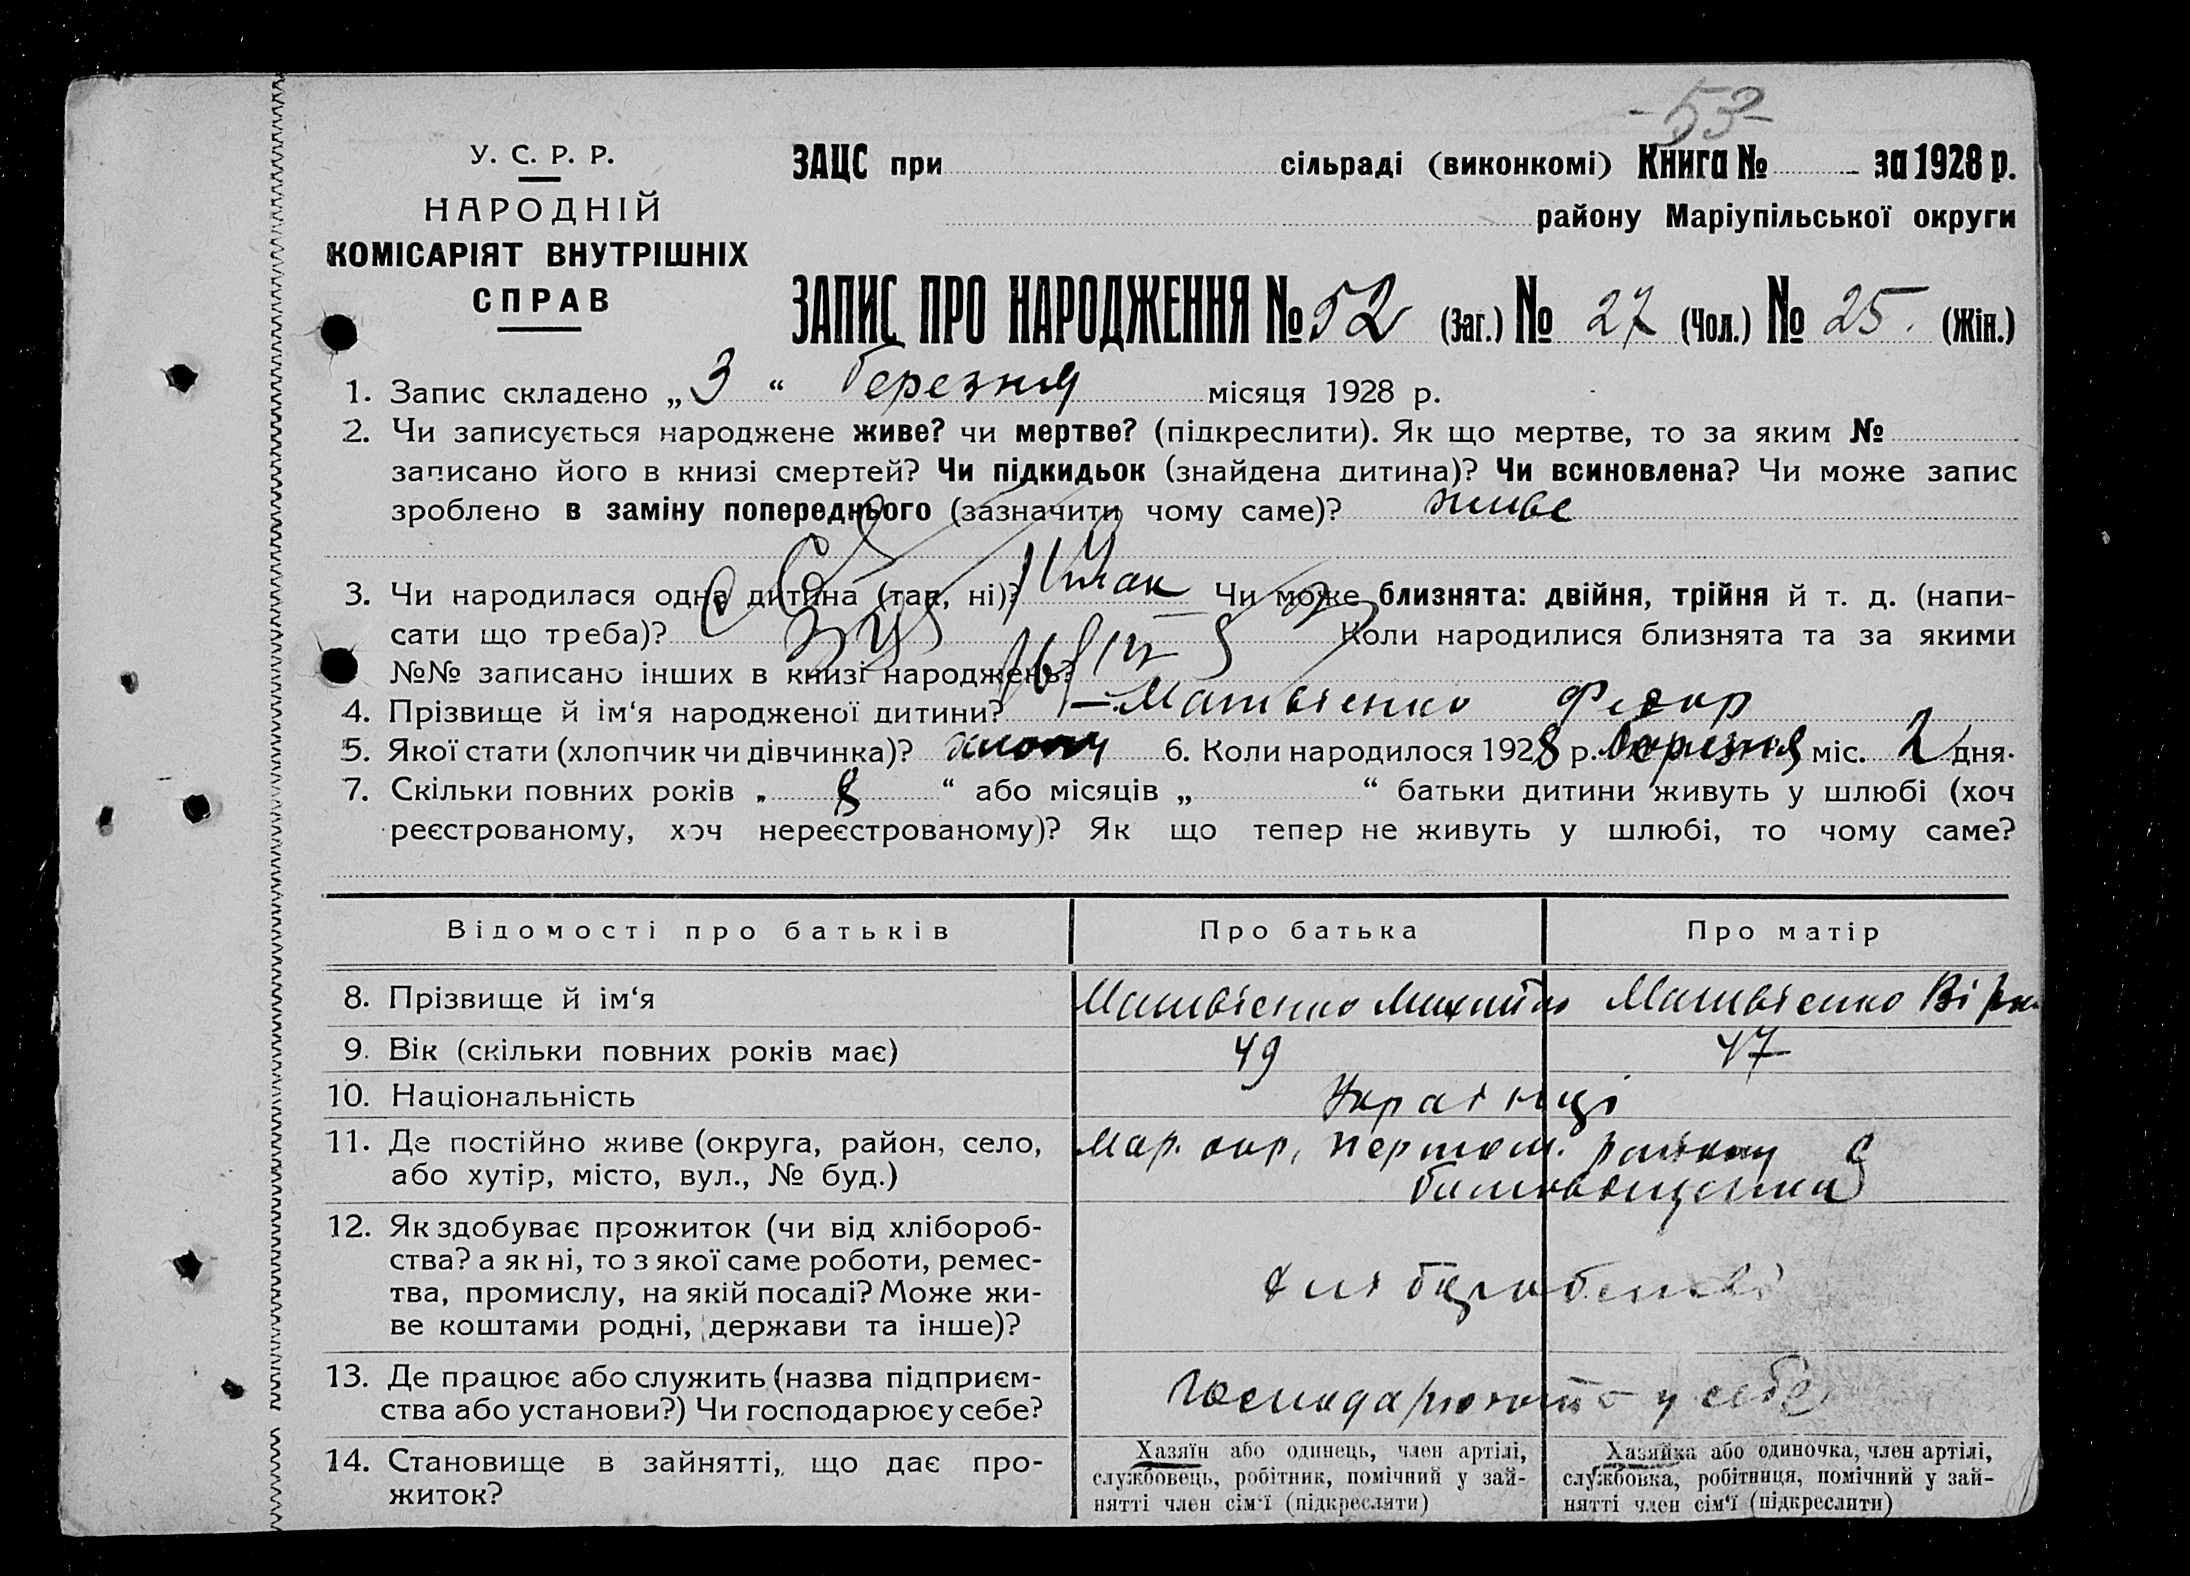 -53-
У. С. Р. Р.
НАРОДНІЙ
КОМІСАРІЯТ ВНУТРІШНІХ
СПРАВ
ЗАЦС при сільраді (виконкомі) Книга № за 1928 р.
району Маріупільської округи
ЗАПИС ПРО НАРОДЖЕННЯ № 52 (Заг.) № 27 (Чол.) № 25. (Жін.)
1. Запис складено „3“ березня місяця 1928 р.
2. Чи записується народжене живе? чи мертве? (підкреслити). Як що мертве, то за яким №
записано його в книзі смертей? Чи підкидьок (знайдена дитина)? Чи всиновлена? Чи може запис
зроблено в заміну попереднього (зазначити чому саме)? живе
3. Чи народилася одна дитина (так, ні)? так Чи може близнята: двійня, трійня й т. д. (напи-
сати що треба)? Коли народилися близнята та за якими
№№ записано інших в книзі народжень?
4. Прізвище й ім‘я народженої дитини? Матвієнко Федор
5. Якої стати (хлопчик чи дівчинка)? хлопч 6. Коли народилося 1928 р. березня міс. 2 дня.
7. Скільки повних років „ 8 “ або місяців „ “ батьки дитини живуть у шлюбі (хоч
реєстрованому, хоч нереєстрованому)? Як що тепер не живуть у шлюбі, то чому саме?
Відомості про батьків Про батька Про матір
8. Прізвище й ім‘я Матвієнко Михайло Матвієнко Віра
9. Вік (скільки повних років має) 49 47
10. Національність Українці
11. Де постійно живе (округа, район, село, Мар. окр, Першом. району С
або хутір, місто, вул., № буд.)
12. Як здобуває прожиток (чи від хлібороб-
ства? а як ні, то з якої саме роботи, ремес-
тва, промислу, на якій посаді? Може жи-
ве коштами родні, держави та інше)?
13. Де працює або служить (назва підприєм-
ства або установи?) Чи господарює у себе? у себе
14. Становище в зайнятті, що дає про-
житок?
Хазяїн або одинець, член артілі,
службовець, робітник, помічний у зай-
нятті член сім‘ї (підкреслити)
Хазяйка або одиночка, член артілі,
службовка, робітниця, помічний у зай-
нятті член сім‘ї (підкреслити)